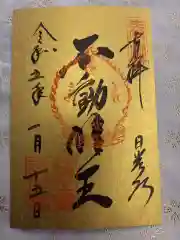 奉拝
日光山
不動明王
令和五年
一月十五日